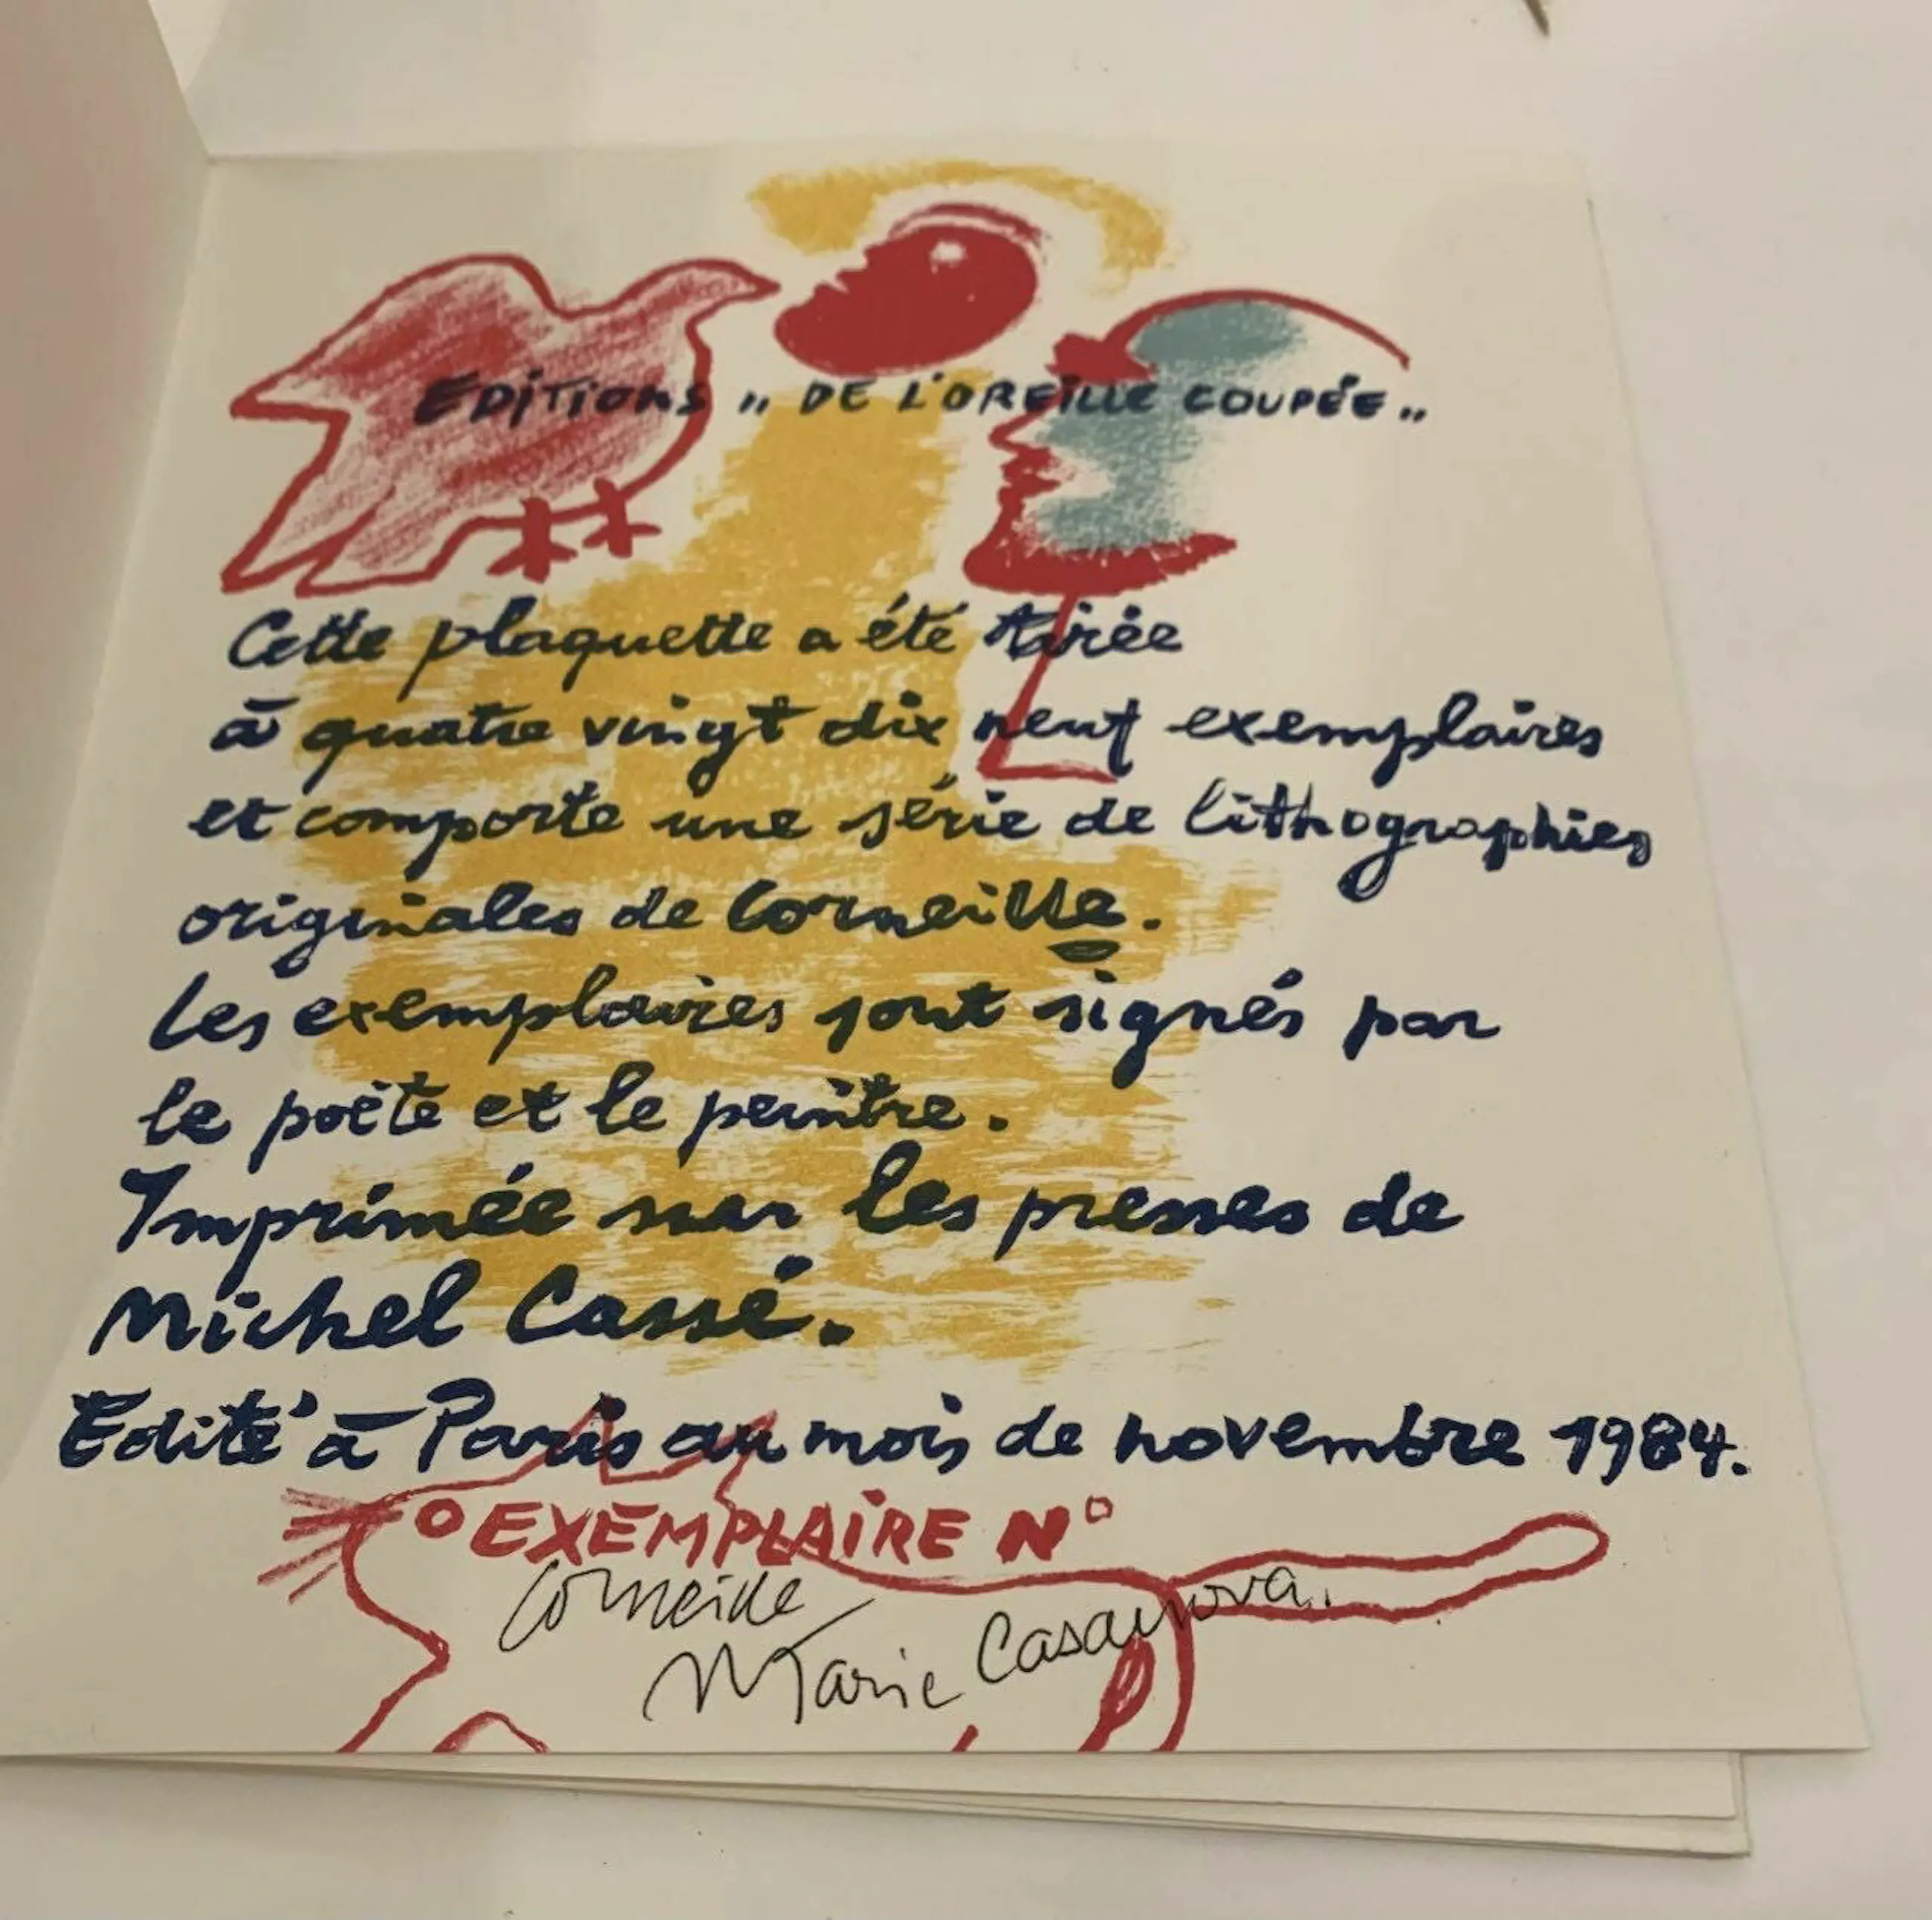 EDITIONS " DE L'OREILLE COUPÉE "
Cette plaquette a été tirée
à quatre vingt dix neuf exemplaires
et comporte une série de lithographies
originales de Corneille.
Les exemplaires sont signés par
le poète et le peintre.
Imprimée sur les presses de
Michel Cassé.
Edité à Paris au mois de novembre 1984.
EXEMPLAIRE N°
Corneille
Marie Casanova.